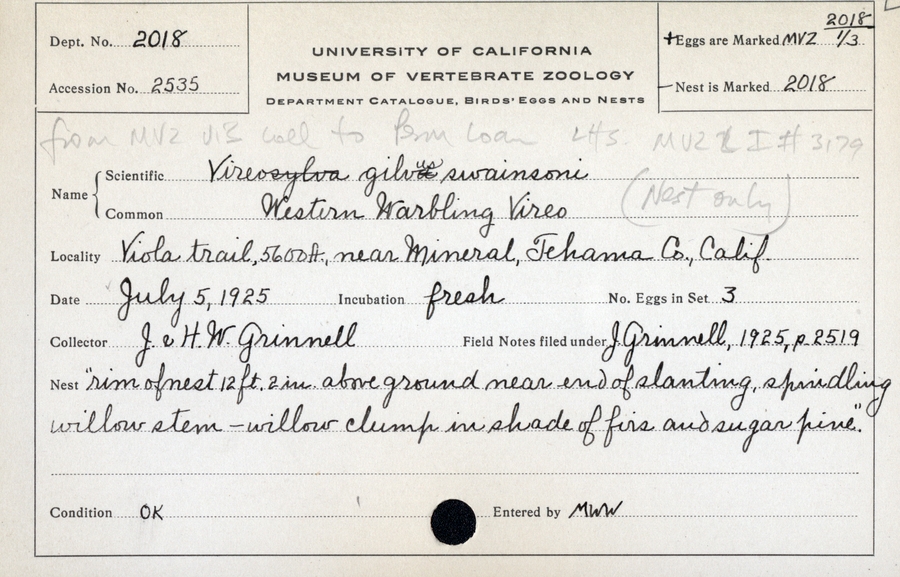 Dept. No. 2018
Accession No. 2535
UNIVERSITY OF CALIFORNIA
MUSEUM OF VERTEBRATE ZOOLOGY
DEPARTMENT CATALOGUE, BIRDS' EGGS AND NESTS
2018
+Eggs are Marked MVZ 1/3
—Nest is Marked 2018
from MVZ coll to Perm Loan LHS. MVZ I # 3179
Name
Scientific Vireosylva gilvus swainsoni
Common Western Warbling Vireo (Nest only)
Locality Viola trail, 5600 ft., near Mineral, Tehama Co., Calif.
Date July 5, 1925 Incubation fresh No. Eggs in Set 3
Collector J. & H. W. Grinnell Field Notes filed under J Grinnell, 1925, p. 2519
Nest "rim of nest 12 ft. 2 in. above ground near end of slanting, spindling
willow stem – willow clump in shade of firs and sugar pine".
Condition OK Entered by MWW